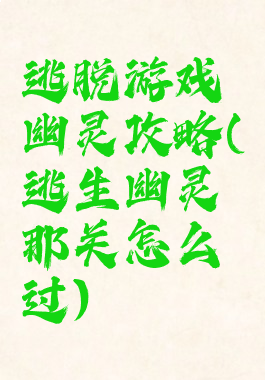 逃脱游戏
幽灵攻略(
逃生幽灵
那关怎么
过)